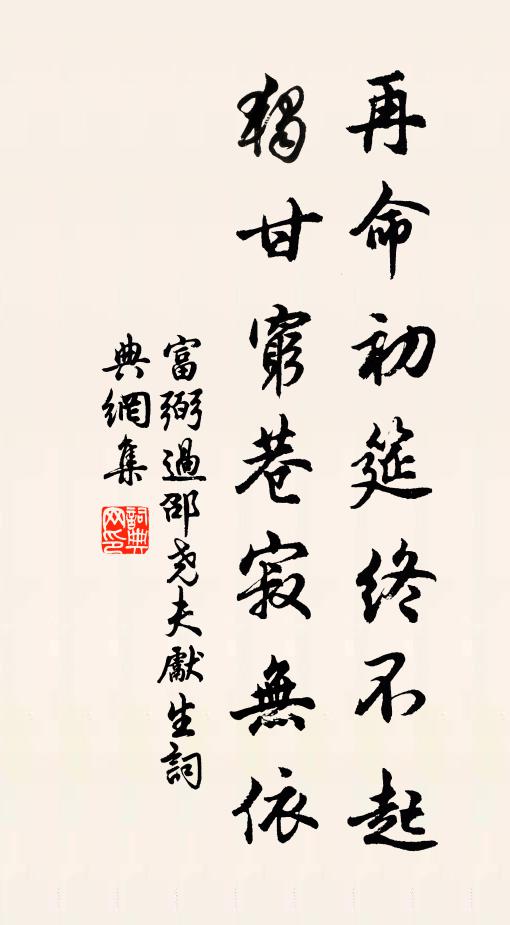 再命初筵終不起
獨甘窮巷寂無依
富弼過邵尭夫獻生詞
典網集
詞典
网印